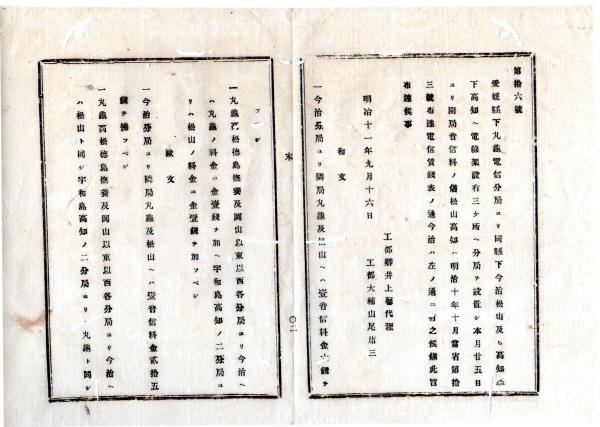 第拾六號
愛媛縣下丸龜電信分局ヨリ同縣下今治松山及ヒ高知縣
下高知ヘ電線架設有三ケ所ヘ分局ヲ設置シ本月廿五日
ヨリ開局音信料ノ儀松山高知ハ明治十年十月當省第拾
三號布達電信賃錢表ノ通今治ハ左ノ通ニ有之候條此旨
布達候事
明治十一年九月十六日
工部卿井上馨代理
工部大輔山尾庸三
和文
一今治分局ヨリ隣局丸龜及松山ヘハ壹音信料金 錢ヲ
拂フベシ
一丸龜高松德島撫養及岡山以東以西各分局ヨリ今治ヘ
ハ丸龜ノ料金ニ金壹錢ヲ加ヘ宇和島高知ノ二分局ヨ
リハ松山ノ料金ニ金壹錢ヲ加フベシ
歐文
一今治分局ヨリ隣局丸龜及松山ヘハ壹音信料金貳拾五
錢ヲ拂フベシ
一丸龜高松德島撫養及岡山以東以西各分局ヨリ今治ヘ
ハ松山ト同シ宇和島高知ノ二分局ヨリハ丸龜ト同シ
〇二